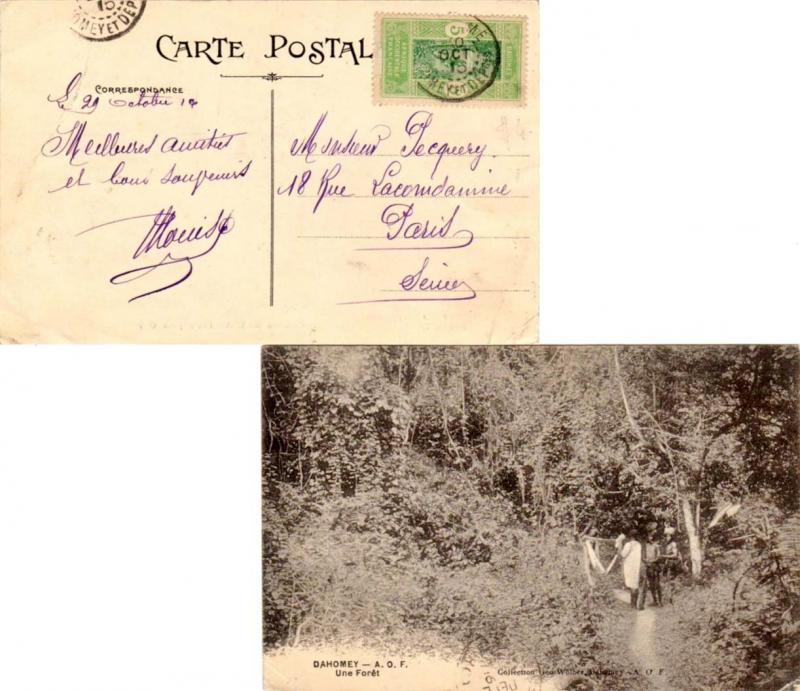 CARTE POSTAL
CORRESPONDANCE
Le 29 Octobre
Meilleures amitiés
et bons souvenirs
Monsieur Pecquery
18 Rue Lacondamine
Paris
Seine
5
OCT
15
OMEY ET DEP
DAHOMEY — A. O. F.
Une Forêt
Collection Geo Wolber, Dahomey — A. O. F